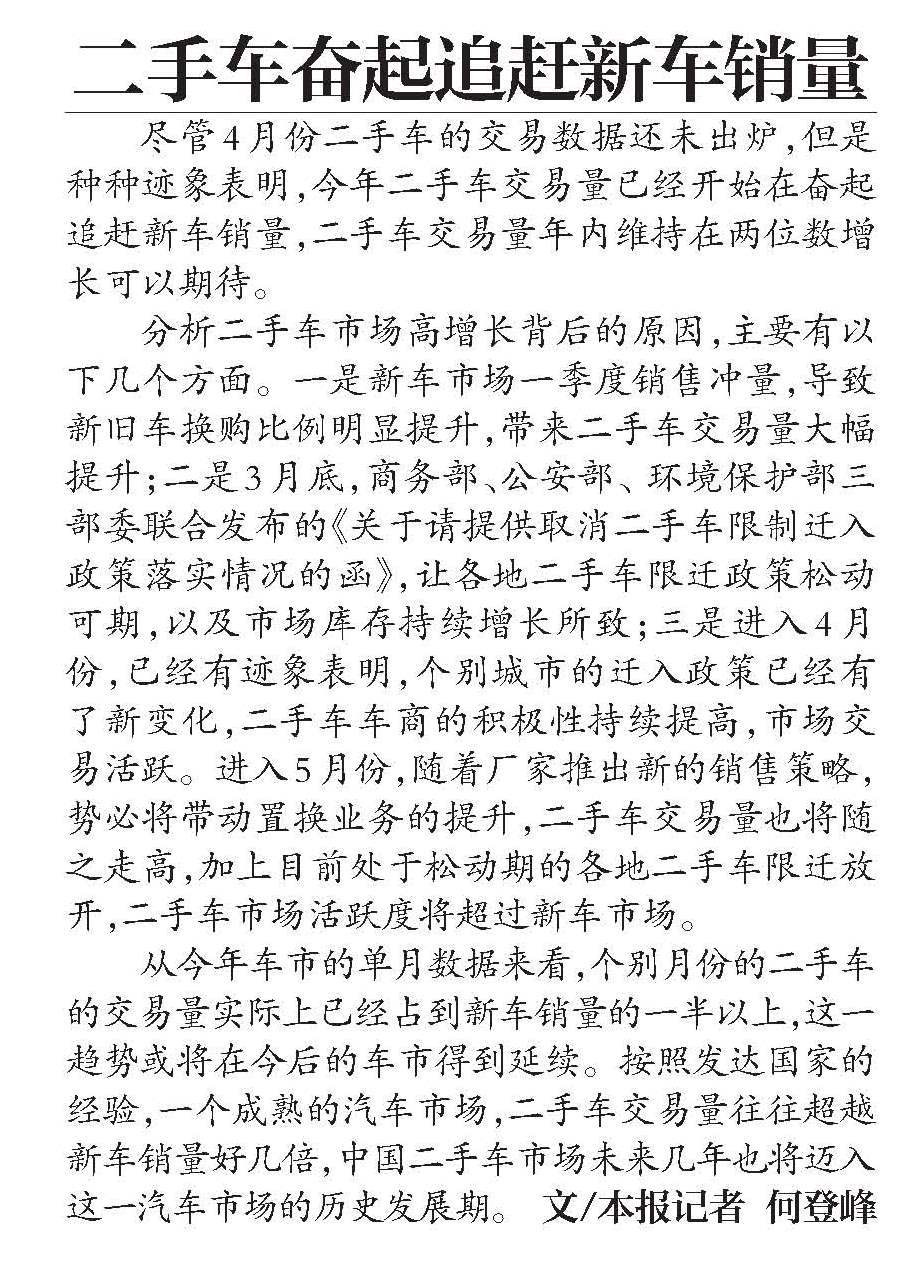 二手车奋起追赶新车销量
尽管4月份二手车的交易数据还未出炉,但是
种种迹象表明,今年二手车交易量已经开始在奋起
追赶新车销量,二手车交易量年内维持在两位数增
长可以期待。
分析二手车市场高增长背后的原因,主要有以
下几个方面。一是新车市场一季度销售冲量,导致
新旧车换购比例明显提升,带来二手车交易量大幅
提升;二是3月底,商务部、公安部、环境保护部三
部委联合发布的《关于请提供取消二手车限制迁入
政策落实情况的函》,让各地二手车限迁政策松动
可期,以及市场库存持续增长所致;三是进入4月
份,已经有迹象表明,个别城市的迁入政策已经有
了新变化,二手车车商的积极性持续提高,市场交
易活跃。进入5月份,随着厂家推出新的销售策略,
势必将带动置换业务的提升,二手车交易量也将随
之走高,加上目前处于松动期的各地二手车限迁放
开,二手车市场活跃度将超过新车市场。
从今年车市的单月数据来看,个别月份的二手车
的交易量实际上已经占到新车销量的一半以上,这一
趋势或将在今后的车市得到延续。按照发达国家的
经验,一个成熟的汽车市场,二手车交易量往往超越
新车销量好几倍,中国二手车市场未来几年也将迈入
这一汽车市场的历史发展期。 文/本报记者 何登峰